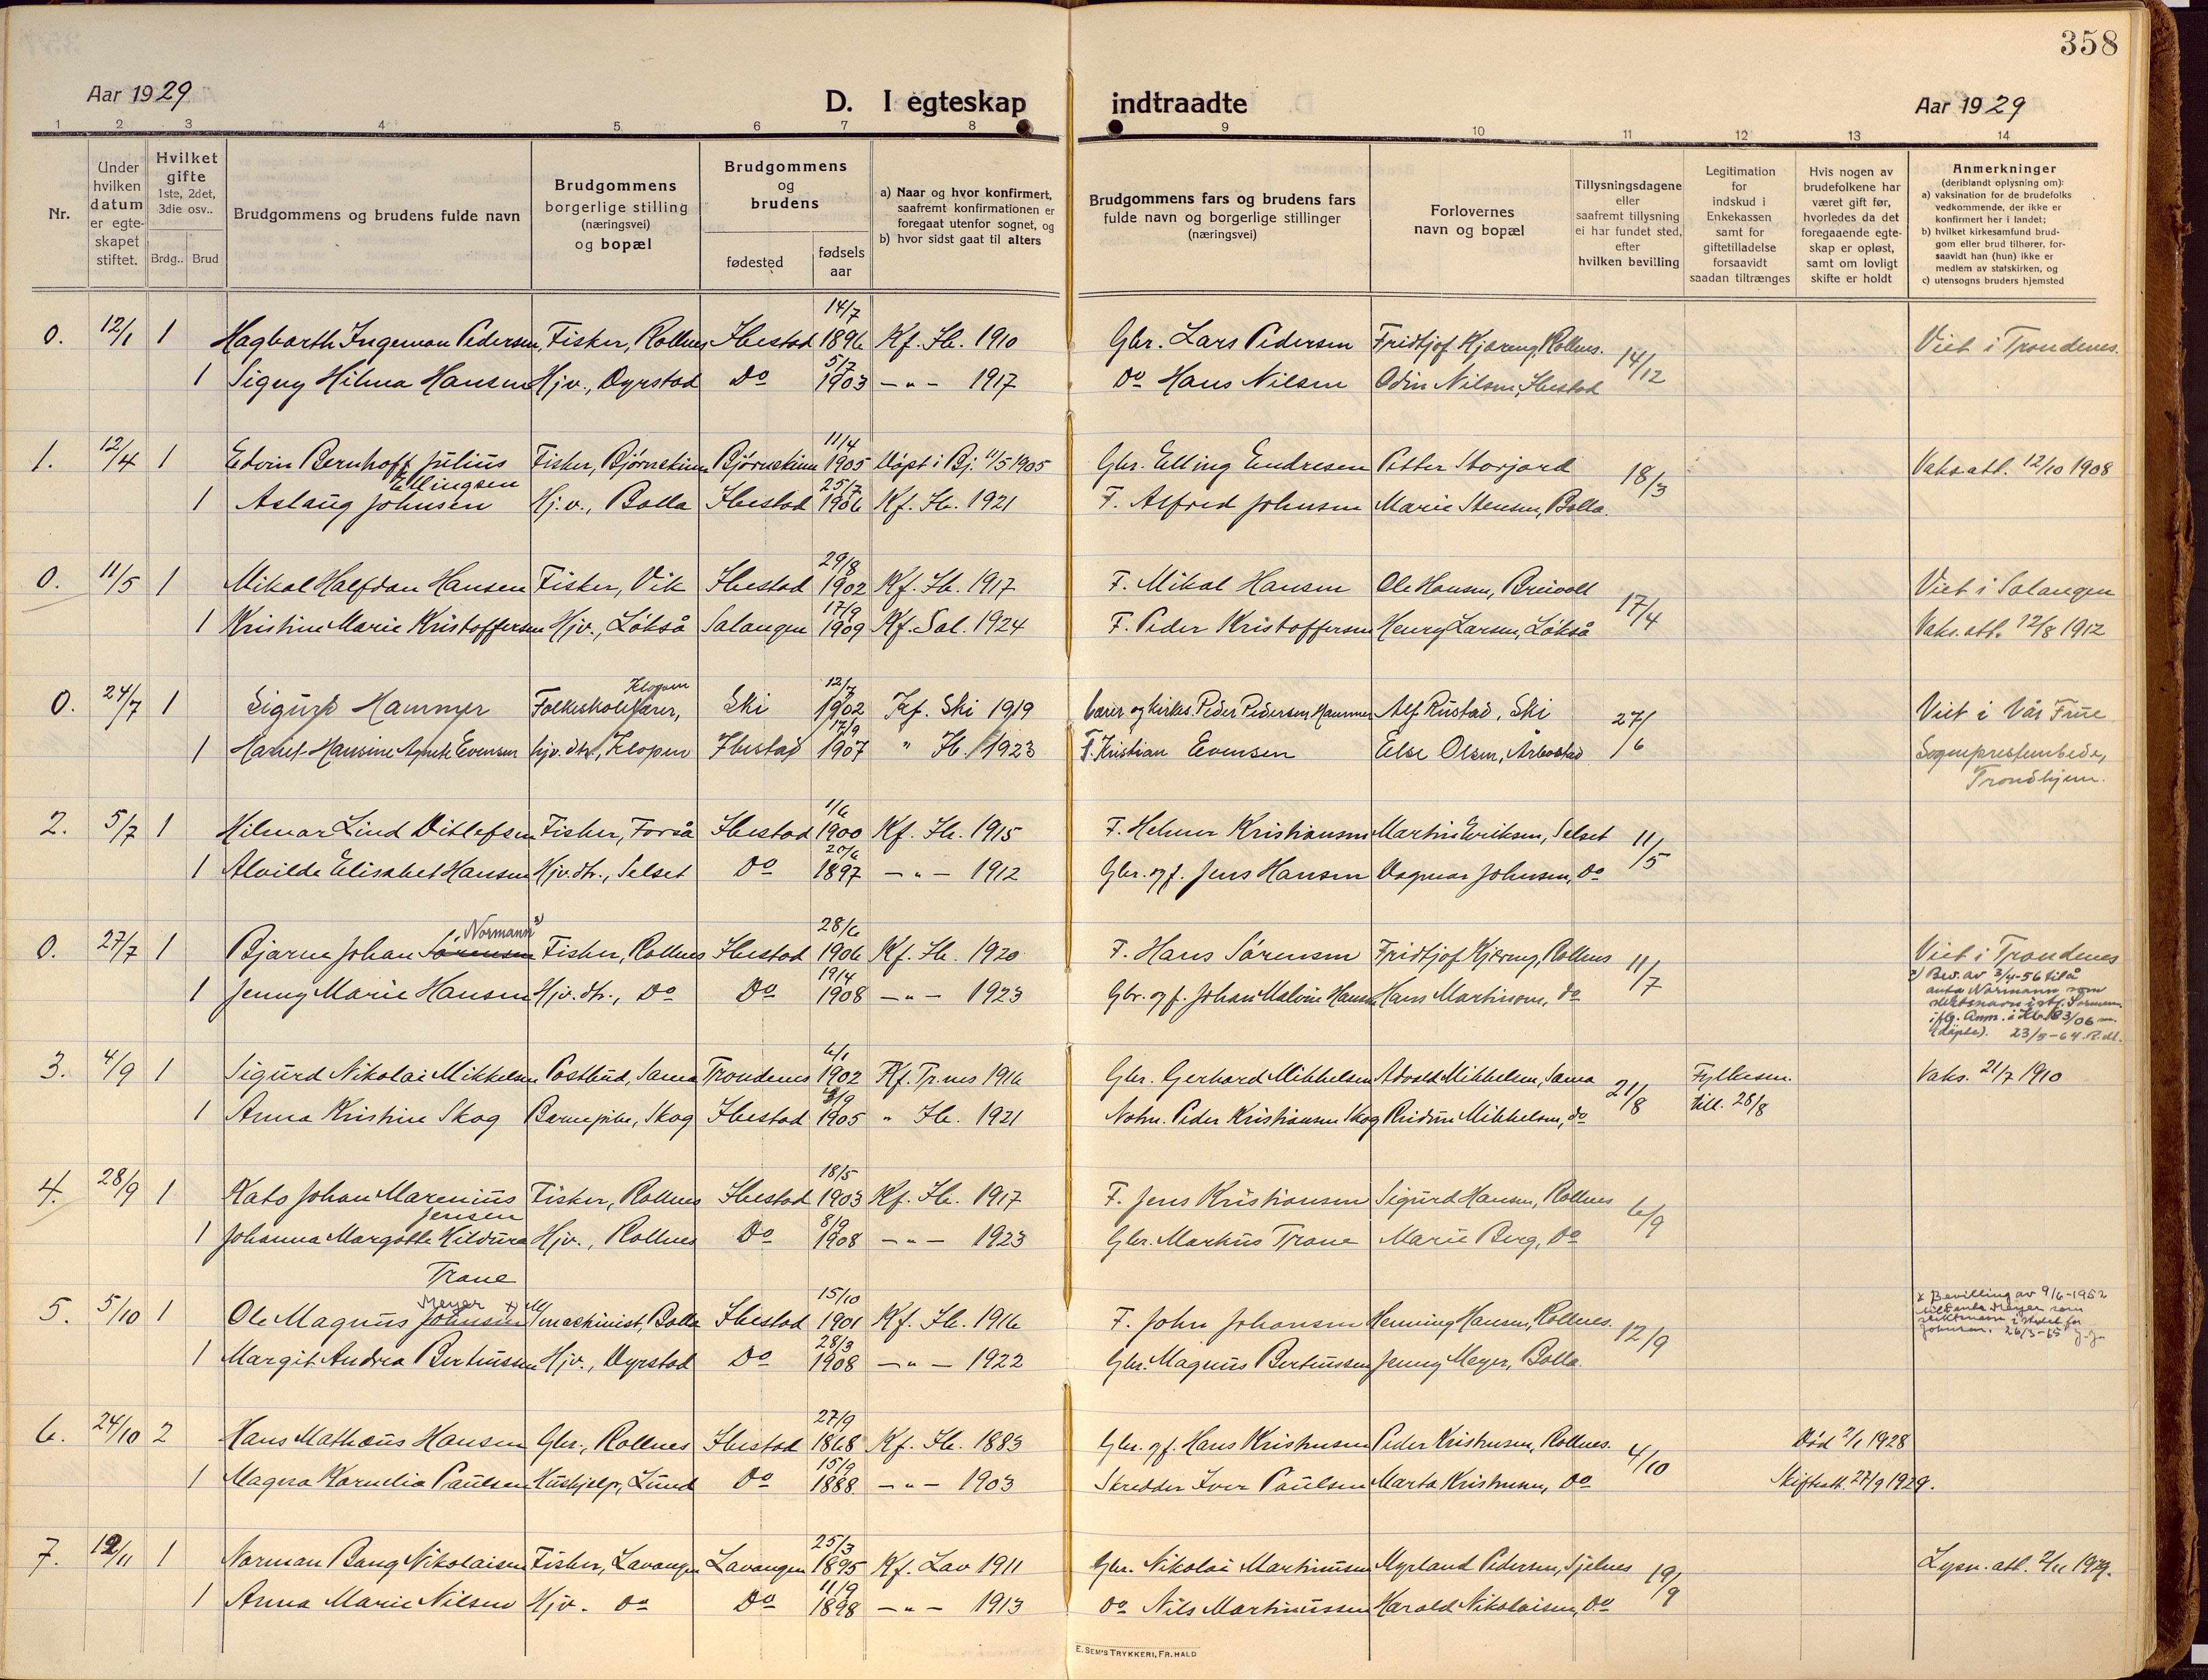 358
Aar 1929
D. I egteskap indtraadte
Aar 1929
1 2 3 4 5 6 7 8 9 10 11 12 13 14
Nr.
Under hvilken datum er egteskapet stiftet.
Hvilket gifte 1ste, 2det, 3die osv..
Brdg.. Brud
Brudgommens og brudens fulde navn
Brudgommens borgerlige stilling (næringsvei) og bopæl
Brudgommens og brudens
fødested
fødsels aar
a) Naar og hvor konfirmert, saafremt konfirmationen er foregaat utenfor sognet, og
b) hvor sidst gaat til alters
Brudgommens fars og brudens fars fulde navn og borgerlige stillinger (næringsvei)
Forlovernes navn og bopæl
Tillysningsdagene eller saafremt tillysning ei har fundet sted, efter hvilken bevilling
Legitimation for indskud i Enkekassen samt for giftetilladelse forsaavidt saadan tiltrænges
Hvis nogen av brudefolkene har været gift før, hvorledes da det foregaaende egteskap er opløst, samt om lovligt skifte er holdt
Anmerkninger (deriblandt oplysning om):
a) vaksination for de brudefolks vedkommende, der ikke er konfirmert her i landet;
b) hvilket kirkesamfund brudgom eller brud tilhører, forsaavidt han (hun) ikke er medlem av statskirken, og
c) utensogns bruders hjemsted
0. 12/1 1 Hagbarth Ingeman Pedersen, Fisker, Rollnes Ibestad 14/7 1896 Kf. Ib. 1910 Gbr. Lars Pedersen Fridtjof Kjæreng, Rollnes. 14/12 Viet i Trondenes.
1 Signy Hilma Hansen Hjv., Dyrstad Do 5/7 1903 —"— 1917 Do Hans Nilsen Odin Nilsen, Ibestad
1. 12/4 1 Edvin Bernhoff Julius Ellingsen Fisker, Bjørnskinn Bjørnskinn 11/4 1905 Døpt i Bj. 11/5 1905 Gbr. Elling Endresen Petter Storjord 18/3 Vaks.att. 12/10 1908
1 Aslaug Johnsen Hj.v., Bolla Ibestad 25/7 1906 Kf. Ib. 1921 F. Alfred Johnsen Marie Stensen, Bolla.
0. 11/5 1 Mikal Halfdan Hansen Fisker, Vik Ibestad 29/8 1902 Kf. Ib. 1917 F. Mikal Hansen Ole Hansen, Breivoll 17/4 Viet i Salangen
1 Kristine Marie Kristoffersen Hjv., Løkså Salangen 17/9 1909 Kf. Sal. 1924 F. Peder Kristoffersen Henry Larsen, Løkså Vaks.att. 12/8 1912
0. 24/7 1 Sigurd Hammer Folkeskolelærer, Klopen Ski 12/7 1902 Kf. Ski 1919 Lærer og kirkes. Peder Pedersen Hammer Alf Rustad, Ski 27/6 Viet i Vår Frue
1 Hansine Agnete Evensen hjv. dtr, Klopen Ibestad 17/9 1907 " Ib. 1923 F. Kristian Evensen Else Olsen, Årbostad Sogneprestembede, Trondhjem.
2. 5/7 1 Hilmar Lind Ditlefsen Fisker, Forså Ibestad 1/6 1900 Kf. Ib. 1915 F. Helmer Kristiansen Martin Eriksen, Selset 11/5
1 Alvilde Elisabet Hansen Hjv.dtr., Selset Do 20/6 1897 —"— 1912 Gbr. og f. Jens Hansen Dagmar Johnsen, Do
0. 27/7 1 Bjarne Johan Sørensen Normann x) Fisker, Rollnes Ibestad 28/6 1906 Kf. Ib. 1920 F. Hans Sørensen Fridtjof Kjæreng, Rollnes 11/7 Viet i Trondenes
1 Jenny Marie Hansen Hjv. dtr., Do Do 19/4 1908 —"— 1923 Gbr. og f. Johan Malvin Hansen Hans Martinsen, do x) Bev. av 3/4-56 til å anta Normann som slektsnavn i st.f. Sørensen iflg. Anm. i 23/5-64.
3. 4/9 1 Sigurd Nikolai Mikkelsen Postbud, Sama Trondenes 6/1 1902 Kf. Tr.nes 1916 Gbr. Gerhard Mikkelsen Advald Mikkelsen, Sama 21/8 Fylkesm. till. 28/8 Vaks. 21/7 1910
1 Anna Kristine Skog Barnepike, Skog Ibestad 1905 " Ib. 1921 Notm. Peder Kristiansen Skog Reidun Mikkelsen, do
4. 28/9 1 Kato Johan Marenius Jensen Fisker, Rollnes Ibestad 18/5 1903 Kf. Ib. 1917 F. Jens Kristiansen Sigurd Hansen, Rollnes 6/9
1 Johanna Margotte Hildura Trane Hjv., Rollnes Do 8/9 1908 —"— 1923 Gbr. Markus Trane Marie Berg, Do
5. 5/10 1 Ole Magnus Johnsen Meyer x) Maskinist, Bolla Ibestad 15/10 1901 Kf. Ib. 1916 F. John Johansen Henning Hansen, Rollnes. 12/9 x Bevilling av 9/6-1952 til å anta Meyer som slektsnavn i stedet for Johnsen. 26/3-65
1 Margit Andrea Berthussen Hjv., Dyrstad Do 28/3 1908 —"— 1922 Gbr. Magnus Berthussen Jenny Meyer, Bolla.
6. 24/10 2 Hans Mathæus Hansen Gbr., Rollnes Ibestad 27/9 1868 Kf. Ib. 1883 Gbr. og f. Hans Kristensen Peder Kristensen, Rollnes. 4/10 Død 2/1 1928
1 Magna Kornelia Paulsen Hushjelp, Lund Do 15/9 1888 —"— 1903 Skredder Iver Paulsen Marta Kristensen, Do Skifteatt. 27/9 1929.
7. 12/11 1 Norman Bang Nikolaisen Fisker, Lavangen Lavangen 25/3 1895 Kf. Lav 1911 Gbr. Nikolai Martinussen Myrland Pedersen, Fjelnes 19/9 Lysn. att. 2/11 1929.
1 Anna Marie Nilsen Hjv. do Do 11/9 1898 —"— 1913 Do Nils Martinussen Harald Nikolaisen, Do
E. SEM'S TRYKKERI, FR.HALD